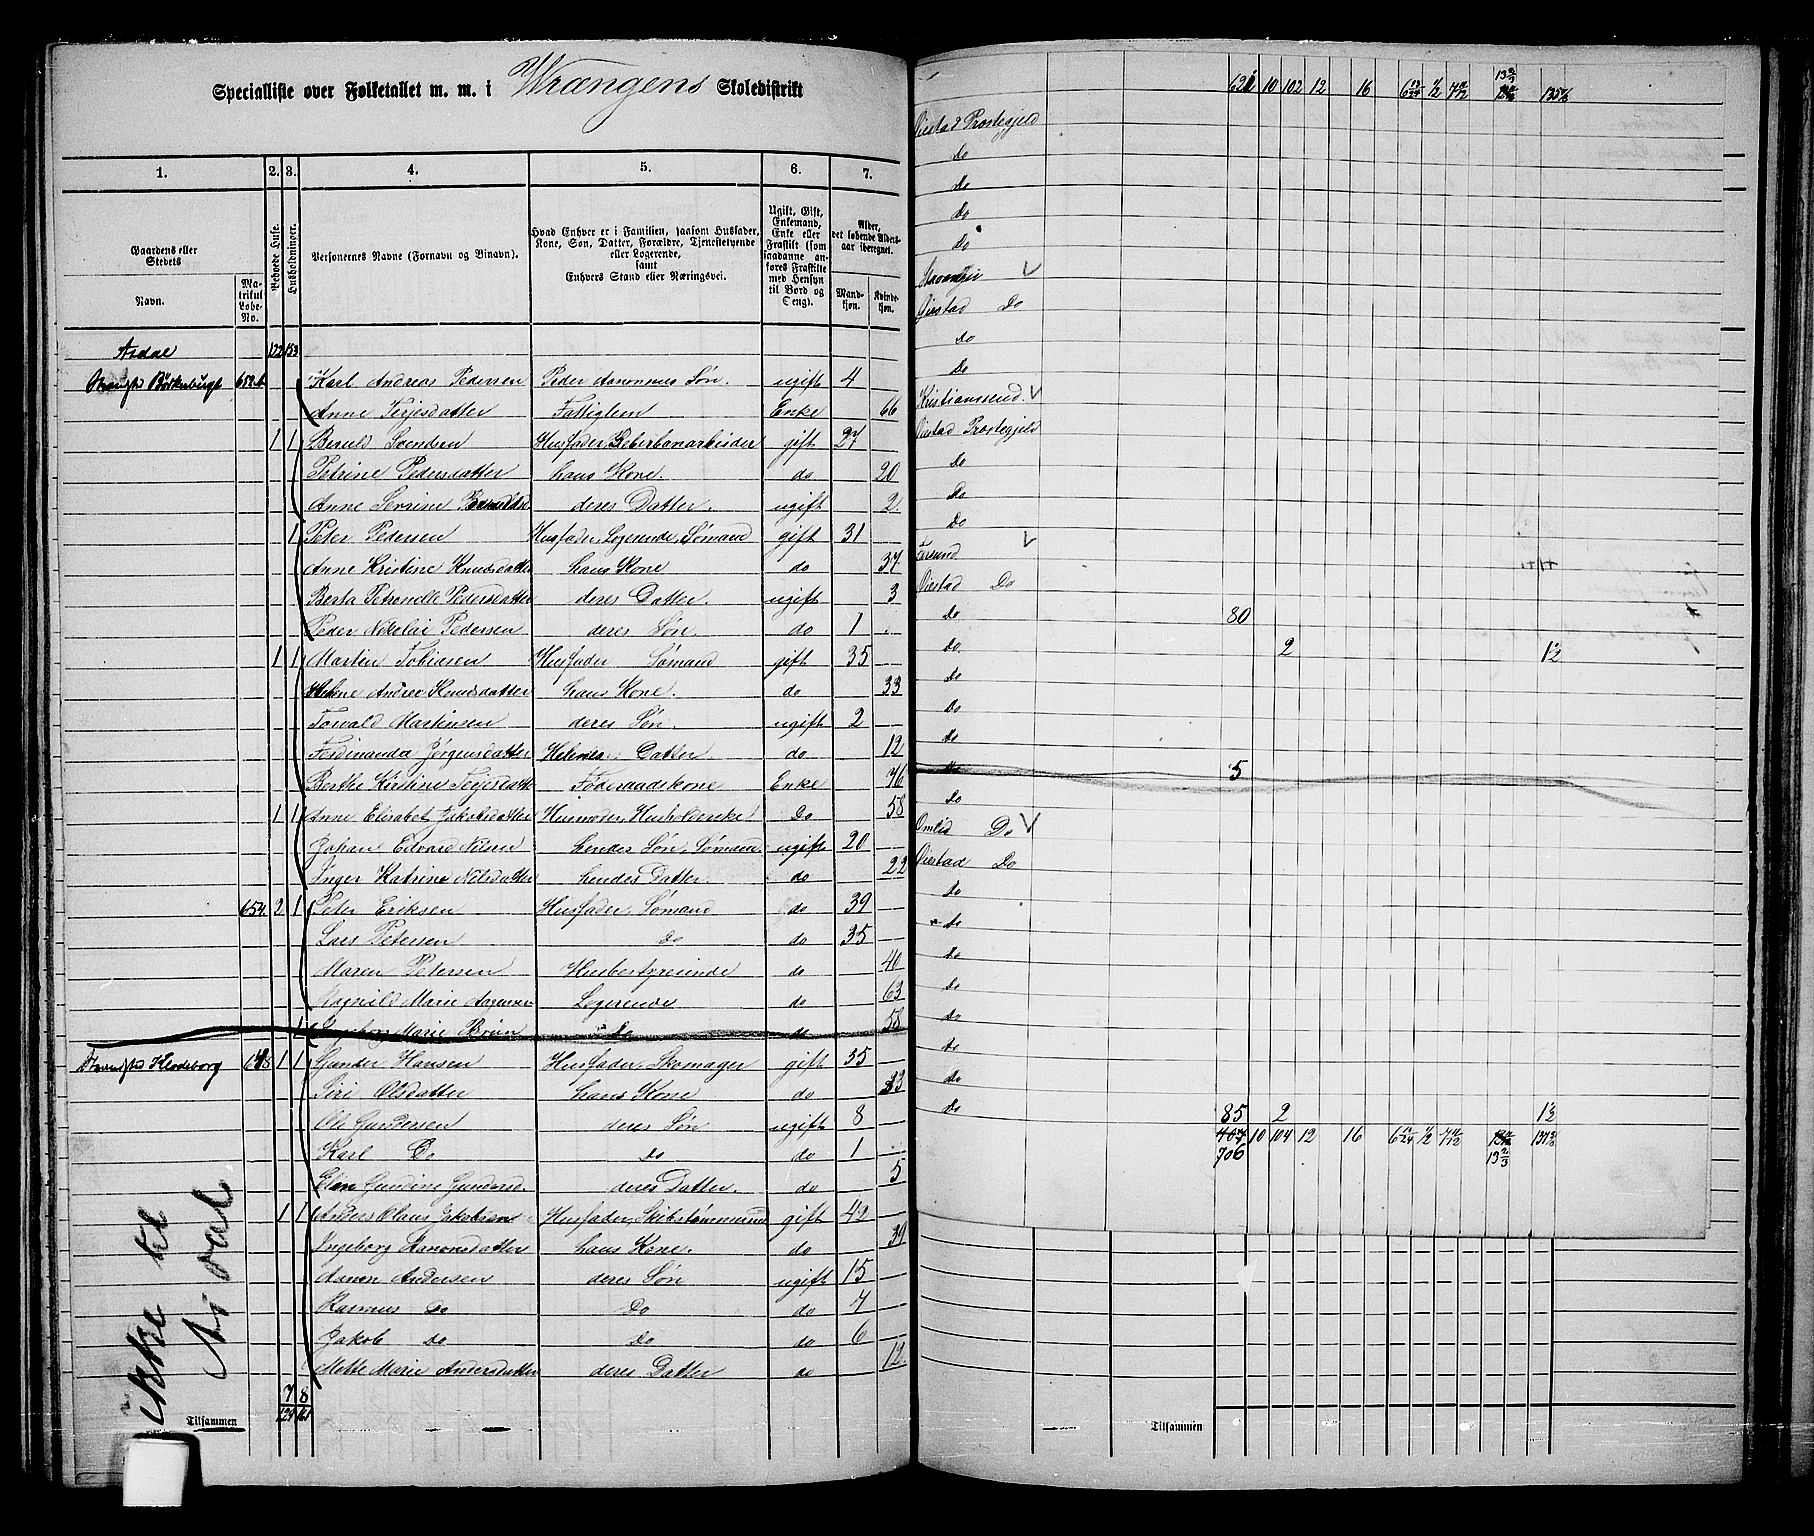 Specialliste over Folketallet m. m. i Wrængens Skoledistrikt
1. 2. 3. 4. 5. 6. 7.
Gaardens eller Stedets
Navn.
Matrikul Løbe-No.
Beboede Huse.
Husholdninger.
Personernes Navne (Fornavn og Binavn).
Hvad Enhver er i Familien, saasom Husfader, Kone, Søn, Datter, Forældre, Tjenestetyende eller Logerende, samt Enhvers Stand eller Næringsvei.
Ugift, Gift, Enkemand, Enke eller Fraskilt (som saadanne anføres Fraskilte med Hensyn til Bord og Seng).
Alder, det løbende Alders-aar iberegnet.
Mandkjøn. Kvindekjøn.
Asdal 122 153
Karl Andreas Pedersen Peder Aanonsens Søn. ugift 4
Anne Terjesdatter Fattiglem Enke 66
1 1 Beruld Svendsen Husfader, gift 27
Petrine Pedersdatter hans Kone. do 20
Anne Serine deres Datter. ugift 2
1 Peter Pedersen Husfader, Logerende, Sømand gift 31
Anne Kristine Knudsdatter hans Kone do 37
Berta Petronelle Pedersdatter deres Datter. ugift 3
Peder Nikolai Pedersen deres Søn. do 1
1 1 Martin Tobiesen Husfader Sømand gift 35
Helene Andrea Knudsdatter hans Kone. do 33
Torvald Martinsen deres Søn. ugift 2
Ferdinanda Jørgensdatter Helenes Datter do 12
Berthe Kirstine Terjesdatter Føderaadskone Enke 76
1 1 Anne Elisabet Jakobsdatter Husmoder, Do 58
Johan Edvard Nilsen hendes Søn, Sømand. ugift 20
Inger Katrine Nilsdatter hendes Datter. do 22
654. 2 1 Peter Eriksen Husfader, Sømand do 39
Lars Petersen Do do 35
Maren Petersen Husbestyrerinde do 40
Magnild Marie Logerende do 63
1 Ingeborg Marie Brun Do do 58
1 1 Gunder Hansen Husfader, Skomager gift 35
Siri Olsdatter hans Kone do 33
Ole Gundersen deres Søn ugift 8
Karl Do Do do 1
Elen Gundine Gundersd. deres Datter. do 5
1 1 Anders Olaus Jakobsen Husfader, Skibstømmermand gift 49
Ingeborg Aanonsdatter hans Kone. do 39
Aanon Andersen deres Søn ugift 15
Rasmus Do Do do 7
Jakob Do Do do 6
Mette Marie Andersdatter deres Datter do 12
7 8
Tilsammen 129 161
Ikke til
10 102 12 16
Øiestad Præstegjeld
Do
Do
Do
Do
Stavanger
Øiestad Do
Do
Do
Kristianssund
Øiestad Præstegjeld
Do
Do
Do
Farsund
Øiestad Do
Do 80
Do. 2 12
Do
Do
Do
Do 5
Do
Omlid Do
Øiestad Do
Do
Do
Do
Do
Do
Do
Do
Do 85 2 12
10 104 12 16
706 13 2/3
Tilsammen